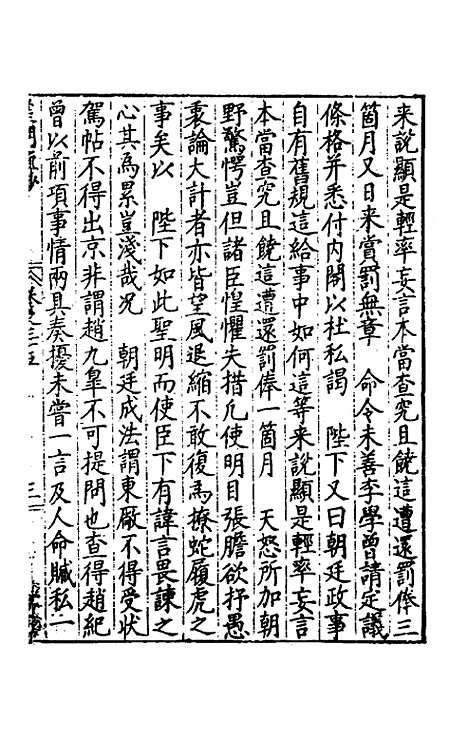 来說顯是輕率妄言本當查究且饒這遭還罰俸三
箇月又日来賞罰無章　命令未善李學曾請定議
條格并悉付内閣以杜私謁　陛下又曰朝廷政事
自有舊規這給事中如何這等来說顯是輕率妄言
本當查究且饒這遭還罰俸一箇月　天怒所加朝
野驚愕豈但諸臣惶懼失措凢使明目張膽欲抒愚
衷論大計者亦皆望風退縮不敢復爲撩蛇履虎之
事矣以　陛下如此聖明而使臣下有諱言畏諫之
心其為累豈淺哉况　朝廷成法謂東厰不得受狀
駕帖不得出京非謂趙九臯不可提問也查得趙紀
曾以前項事情兩具奏擾未嘗一言及人命贓私二